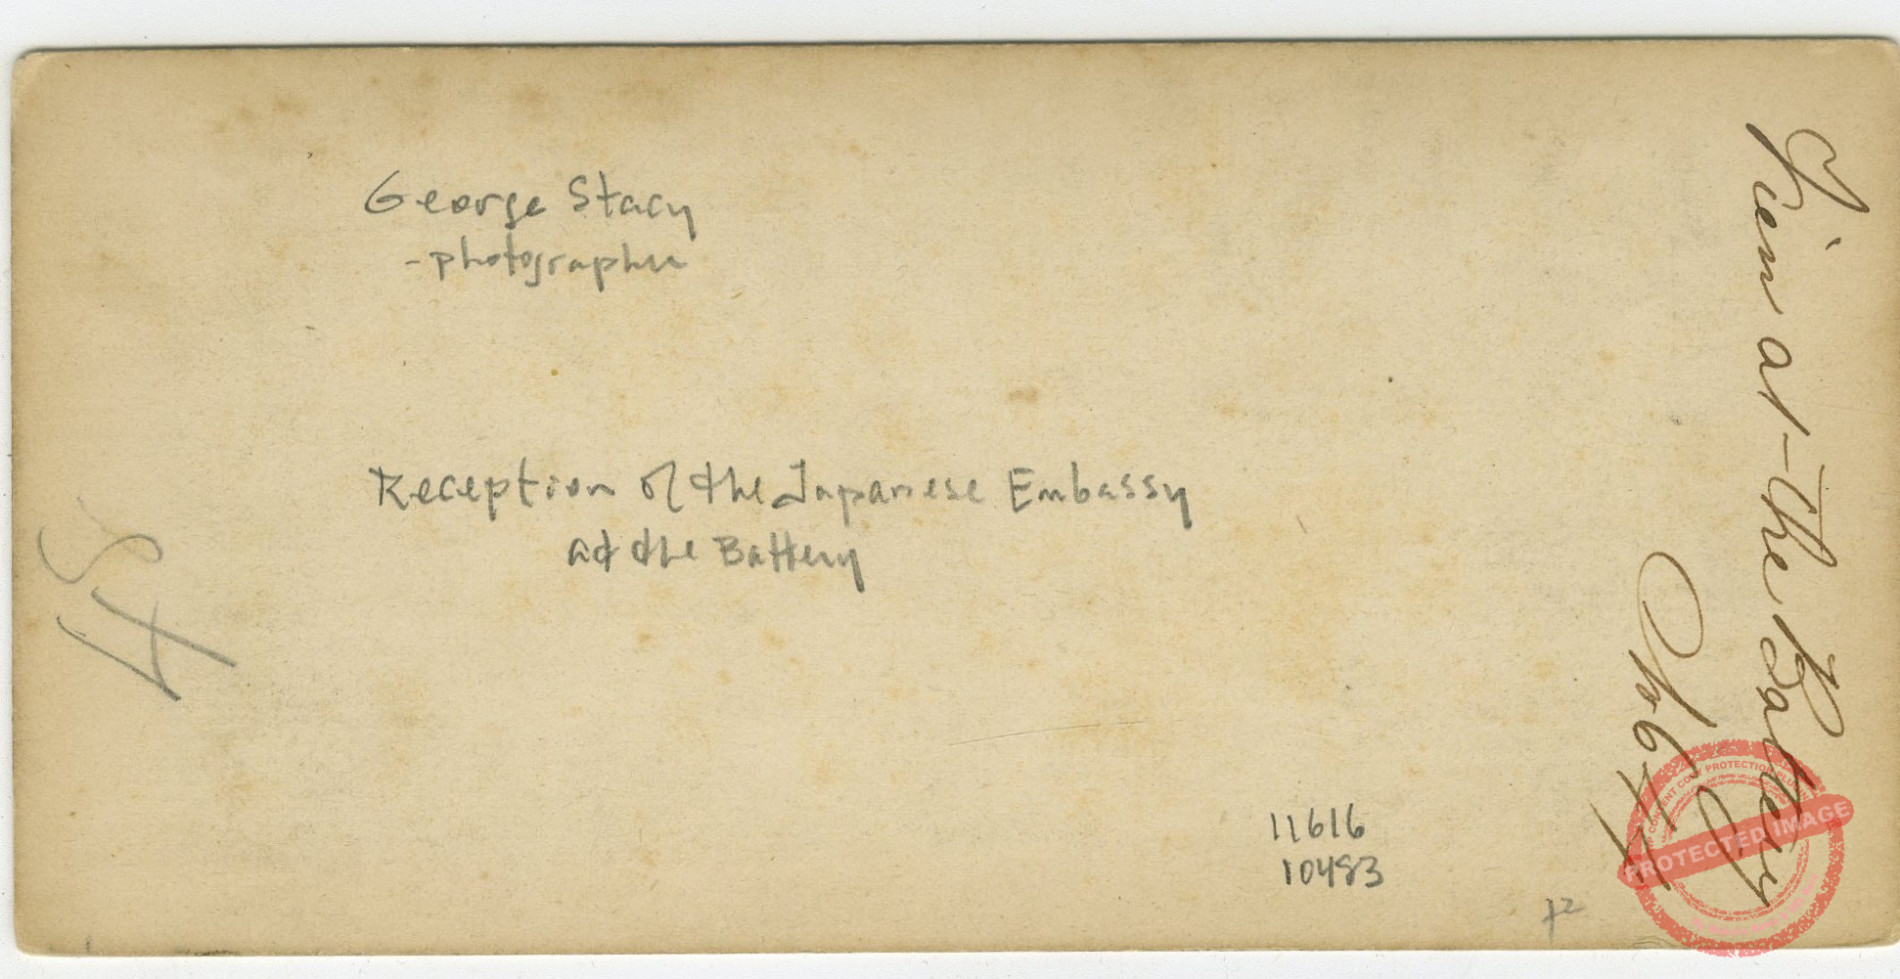 George Stacy
- photographer
Reception of the Japanese Embassy
at the Battery
11616
10483
View at the Battery
PROTECTED IMAGE